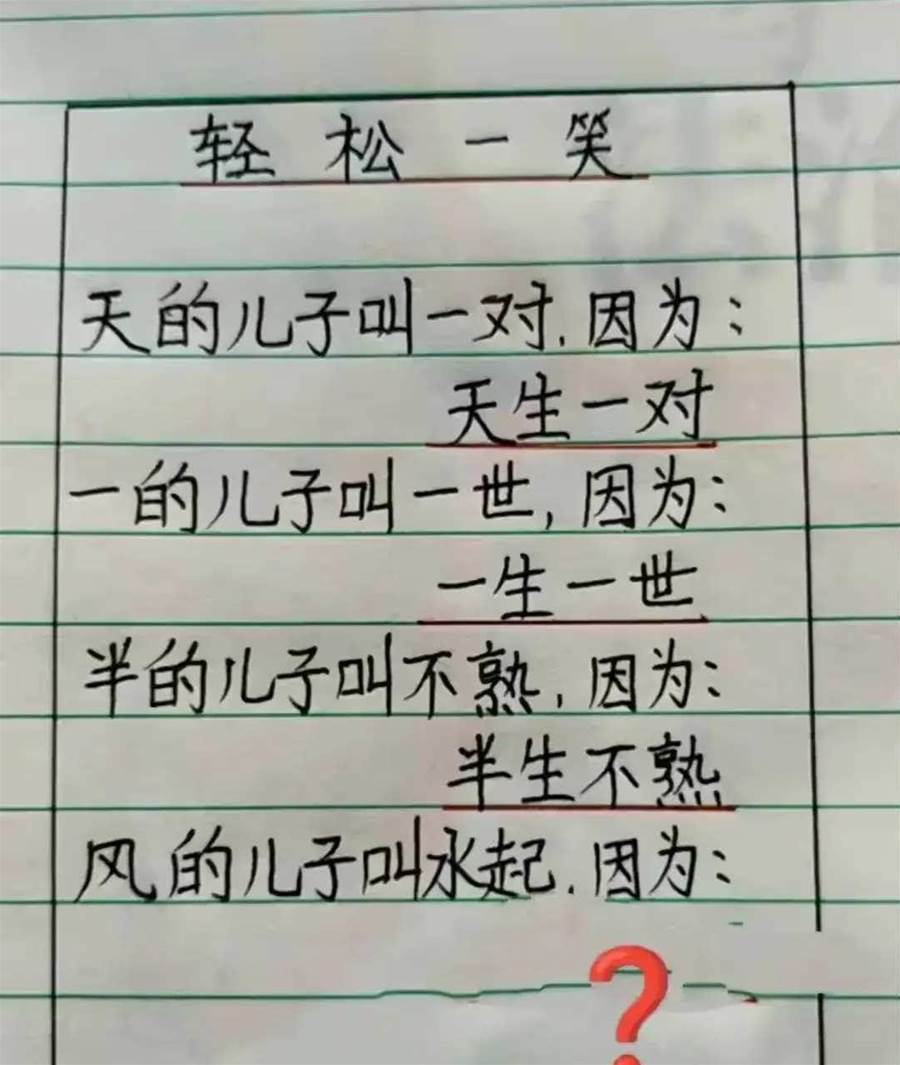 轻松一笑
天的儿子叫一对.因为:
天生一对
一的儿子叫一世,因为:
一生一世
半的儿子叫不熟,因为:
半生不熟
风的儿子叫水起.因为:
❓